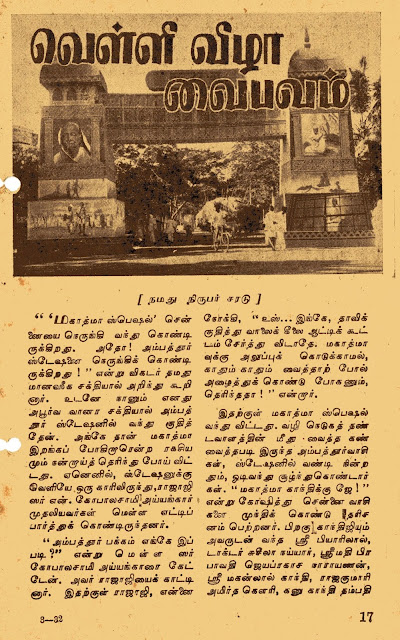 வெள்ளி விழா
வைபவம்
[ நமது நிருபர் சரடு ]
“ ‘மகாத்மா ஸ்பெஷல்’ சென்
னையை நெருங்கி வந்து கொண்டி
ருக்கிறது. அதோ! அம்பத்தூர்
ஸ்டேஷனை நெருங்கிக் கொண்டி
ருக்கிறது!” என்று விகடர் தமது
மானஸீக சக்தியால் அறிந்து கூறி
னார். உடனே நானும் எனது
அபூர்வ வானர சக்தியால் அம்பத்
தூர் ஸ்டேஷனில் வந்து குதித்
தேன். அங்கே தான் மகாத்மா
இறங்கப் போகிறாரென்ற ரகசிய
மும் நன்றாய்த் தெரிந்து போய் விட்
டது. ஏனெனில், ஸ்டேஷனுக்கு
வெளியே ஒரு காரிலிருந்து, ராஜாஜி
ஸர் என். கோபாலசாமி அய்யங்கார்
முதலியவர்கள் மெள்ள எட்டிப்
பார்த்துக் கொண்டிருந்தனர்.
“அம்பத்தூர் பக்கம் எங்கே இப்
படி?” என்று மெள்ள ஸர்
கோபாலசாமி அய்யங்காரை கேட்
டேன். அவர் ராஜாஜியைக் காட்டி
னார். இதற்குள் ராஜாஜி, என்னை
நோக்கி, “உஸ்... இங்கே, தாவிக்
குதித்து வாலைக் கீலை ஆட்டிக் கூட்
டம் சேர்த்து விடாதே. மகாத்மா
வுக்கு அலுப்புக் கொடுக்காமல்,
காதும் காதும் வைத்தாற் போல்
அழைத்துக் கொண்டு போகணும்,
தெரிந்ததா!” என்றார்.
இதற்குள் மகாத்மா ஸ்பெஷல்
வந்து விட்டது. வழி நெடுகத் தண்
டவாளத்தின் மீது வைத்த கண்
வைத்தபடி இருந்த அம்பத்தூர்வாசி
கள், ஸ்டேஷனில் வண்டி நின்ற
தும், ஓடிவந்து சூழ்ந்துகொண்டார்
கள். “மகாத்மா காந்திக்கு ஜே!”
என்று கோஷித்து சென்னைவாசி
களை முந்திக் கொண்டு தரிச
னம் பெற்றனர். பிறகு காந்திஜியும்
அவருடன் வந்த ஸ்ரீ பியாரிலால்,
டாக்டர் சுசீலா நய்யார், ஸ்ரீமதி பிர
பாவதி ஜெயப்பிரகாச நாராயணன்,
ஸ்ரீ மகன்லால் காந்தி, ராஜகுமாரி
அமிர்த கௌரி, கனு காந்தி தம்பதி
3—32
17